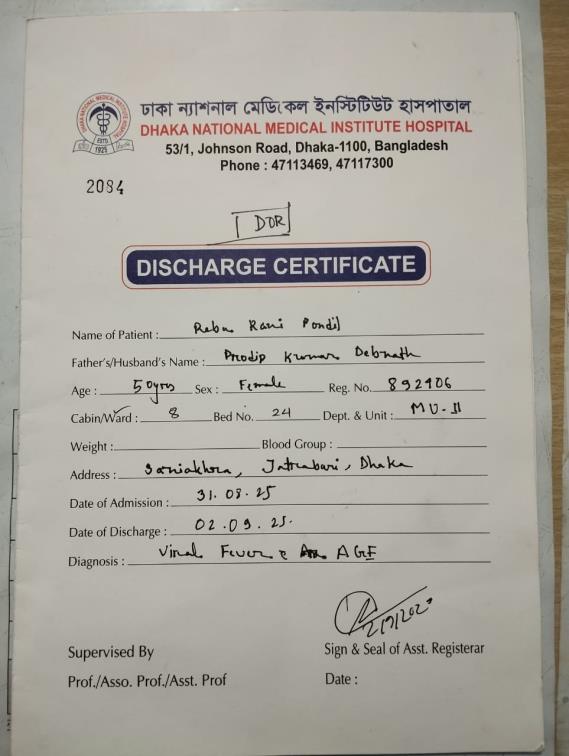 ঢাকা ন্যাশনাল মেডিকেল ইনস্টিটিউট হাসপাতাল
DHAKA NATIONAL MEDICAL INSTITUTE HOSPITAL
53/1, Johnson Road, Dhaka-1100, Bangladesh
Phone : 47113469, 47117300
DHAKA NATIONAL MEDICAL INSTITUTE HOSPITAL
ESTD
1925
2084
DOR
DISCHARGE CERTIFICATE
Name of Patient : Rebu Rani Pondit
Father's/Husband's Name : Prodip Kumar Debnath
Age : 50yrs Sex : Female Reg. No. 892906
Cabin/Ward : 8 Bed No. 24 Dept. & Unit : MU-II
Weight : Blood Group :
Address : Jatrabari, Dhaka
Date of Admission : 31.08.25
Date of Discharge : 02.09.25.
Diagnosis : Viral Fever c AGE
2/9/202
Supervised By
Sign & Seal of Asst. Registerar
Prof./Asso. Prof./Asst. Prof
Date :